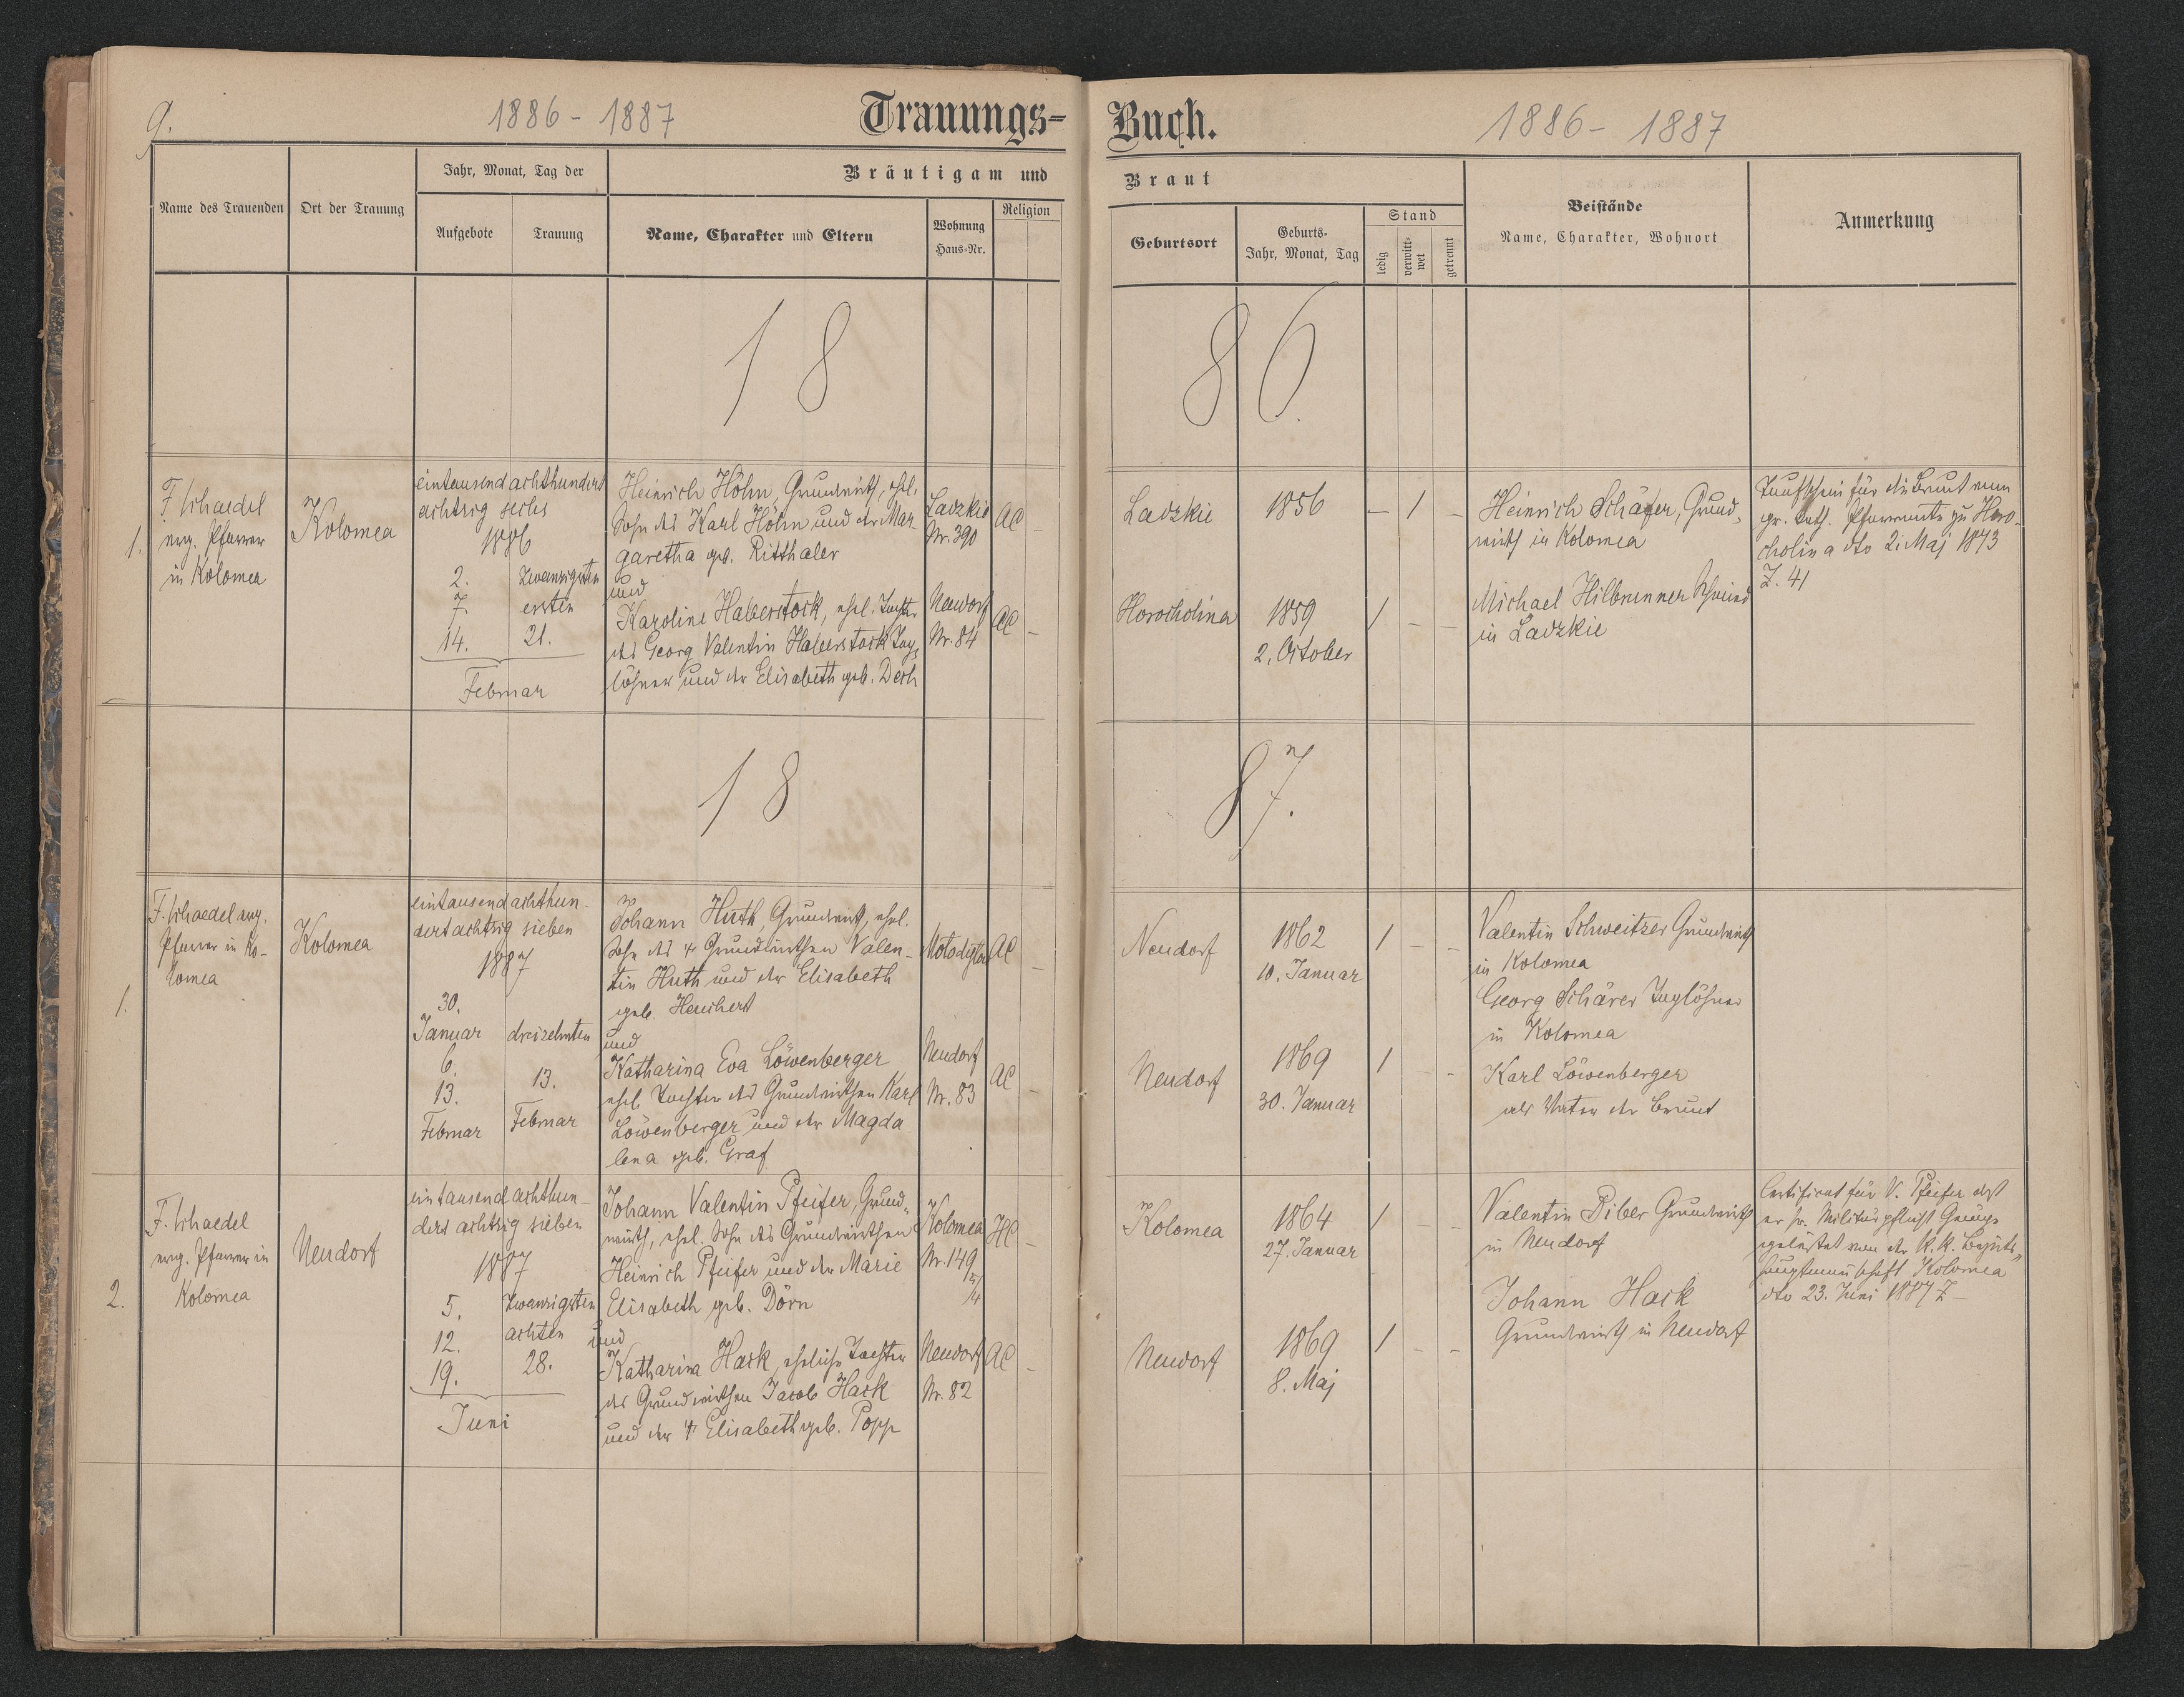 9.
1886 - 1887
Trauungs-
Buch.
1886 - 1887
Name des Trauenden
Ort der Trauung
Jahr, Monat, Tag der
Aufgebote
Trauung
Bräutigam und
Name, Charakter und Eltern
Wohnung
Haus-Nr.
Religion
Braut
Geburtsort
Geburts-
Jahr, Monat, Tag
Stand
ledig
verwitt-
wet
getrennt
Beistände
Name, Charakter, Wohnort
Anmerkung
18
86.
1.
F. Schaedel
evg. Pfarrer
in Kolomea
Kolomea
eintausend achthundert
achtzig sechs
1886
2.
7.
14.
zwanzigsten
ersten
21.
Februar
Heinrich Höhn, Grundwirth, ehel.
Sohn des Karl Höhn und der Mar-
garetha geb. Ritthaler
und
Karoline Haberstock, ehel. Tochter
des Georg Valentin Haberstock Tag-
löhner und der Elisabeth geb. Desh
Ladzkie
Nr. 390
AC
Neudorf
Nr. 84
AC
Ladzkie
1856
— 1 —
Horocholina
1859
2. October
1 — —
Heinrich Schäfer, Grund-
wirth in Kolomea
Michael Hilbrunner Schmied
in Ladzkie
Taufschein für die Braut vom
gr. kath. Pfarramte zu Horo-
cholina dto 2. Maj 1873
Z. 41
18
87.
1.
F. Schaedel evg.
Pfarrer in Ko-
lomea
Kolomea
eintausend achthun-
dert achtzig sieben
1887
30.
Januar
6.
13.
Februar
dreizehnten
13.
Februar
Johann Huth, Grundwirth, ehel.
Sohn des † Grundwirthen Valen-
tin Huth und der Elisabeth
geb. Heuchert
und
Katharina Eva Löwenberger
ehel. Tochter des Grundwirthen Karl
Löwenberger und der Magda
lena geb. Graf
AC
Neudorf
Nr. 83
AC
Neudorf
1862
10. Januar
1 — —
Neudorf
1869
30. Januar
1 — —
Valentin Schweitzer Grundwirth
in Kolomea
Georg Schärer Taglöhner
in Kolomea
Karl Löwenberger
als Vater der Braut
2.
F. Schaedel
evg. Pfarrer in
Kolomea
Neudorf
eintausend achthun-
dert achtzig sieben
1887
5.
12.
19.
zwanzigsten
achten
28.
Juni
Johann Valentin Pfeifer, Grund-
wirth, ehel. Sohn des Grundwirthen
Heinrich Pfeifer und der Marie
Elisabeth geb. Dörn
und
Katharina Hack, eheliche Tochter
des Grundwirthen Jacob Hack
und der † Elisabeth geb. Popp
Kolomea
Nr. 149
HC
Neudorf
Nr. 82
AC
Kolomea
1864
27. Januar
1 — —
Neudorf
1869
8. Maj
1 — —
Valentin Piber Grundwirth
in Neudorf
Johann Hack
Grundwirth in Neudorf
Certificat für V. Pfeifer daß
er sr. Militärpflicht Genüge
geleistet von der K. K. Bezirks-
hauptmannschaft Kolomea
dto 23. Juni 1887 Z —